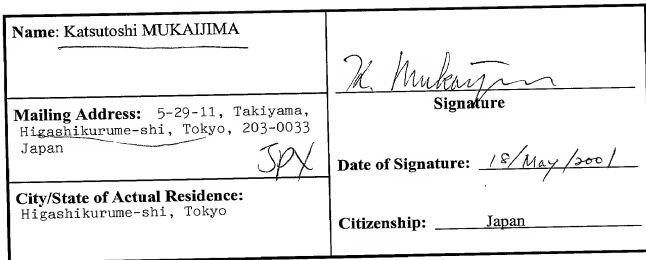 Name: Katsutoshi MUKAIJIMA
Mailing Address: 5-29-11, Takiyama,
Higashikurume-shi, Tokyo, 203-0033
Japan
JPX
City/State of Actual Residence:
Higashikurume-shi, Tokyo
K. Mukaijima
Signature
Date of Signature: 18/May/2001
Citizenship: Japan